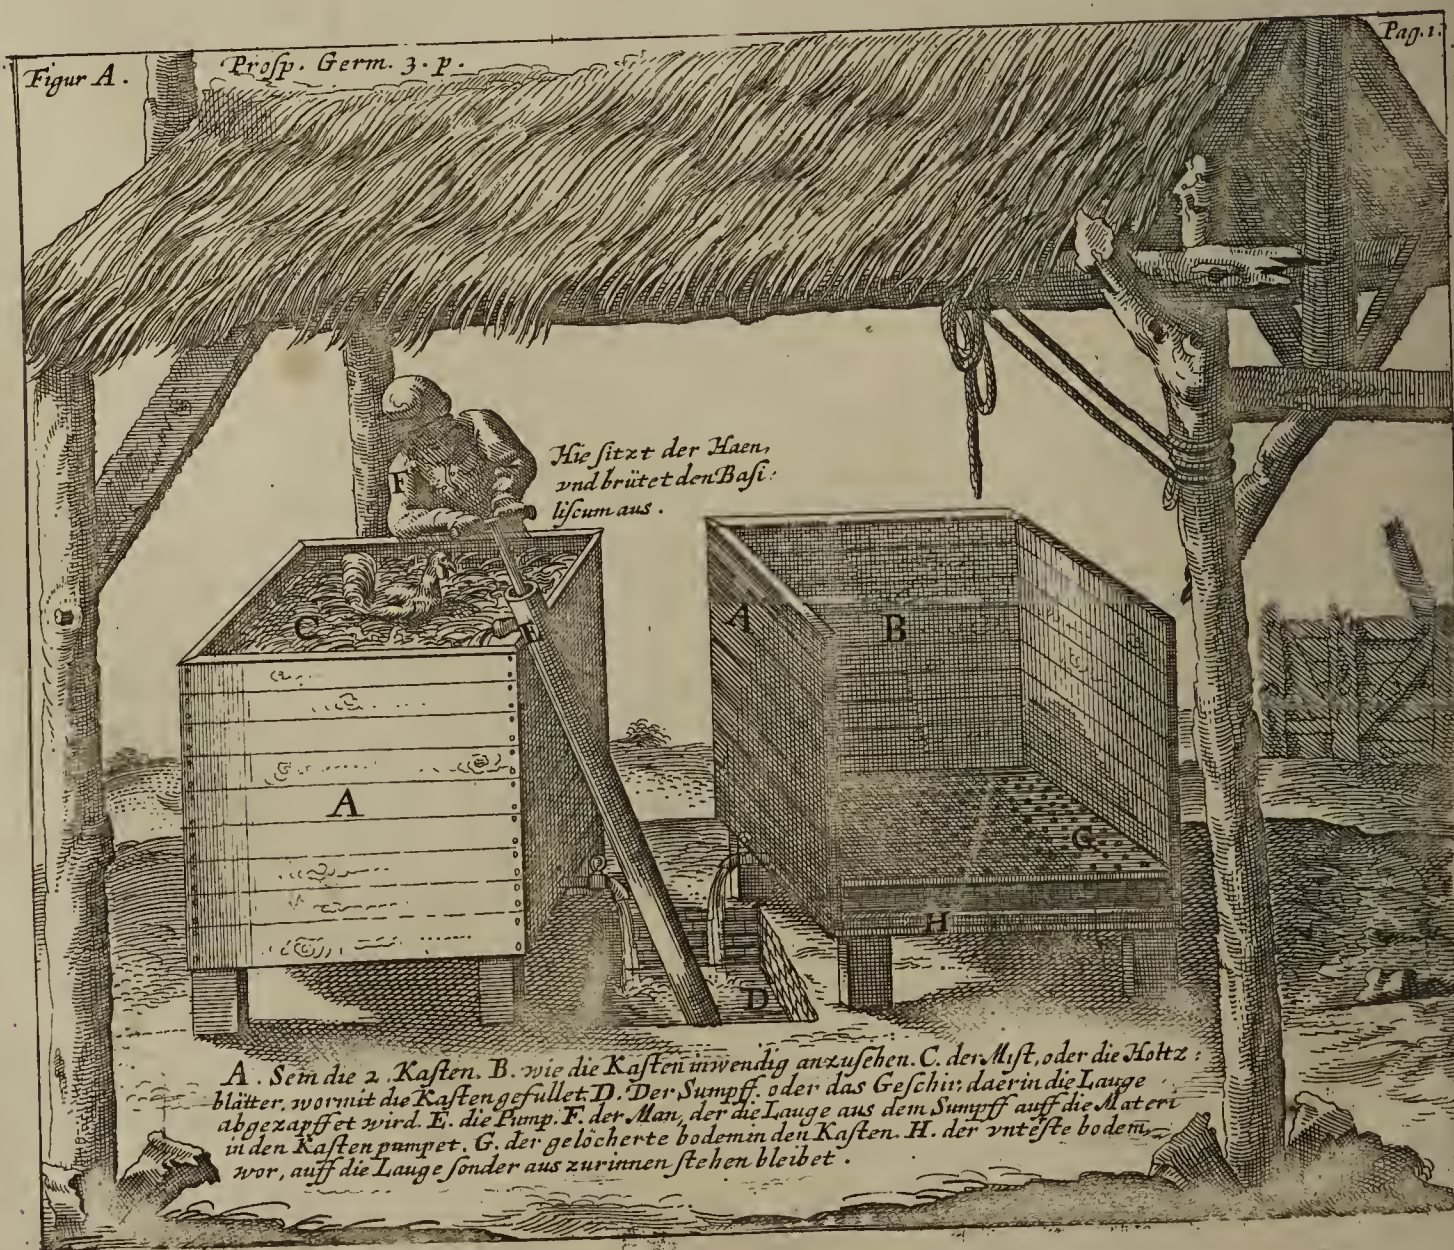 Figur A.
Prosp. Germ. 3. p.
Pag. 1.
F
Hie sitzt der Haen,
vnd brütet den Basi:
liscum aus.
C
E
A
B
A
G
H
D
A. Sein die 2. Kasten. B. wie die Kasten inwendig anzusehen. C. der Mist, oder die Holtz:
blätter, wormit die Kasten gefullet. D. Der Sumpff. oder das Geschir, daerin die Lauge
abgezapffet wird. E. die Pump. F. der Man, der die Lauge aus dem Sumpff auff die Materi
in den Kasten pumpet. G. der gelöcherte bodem in den Kasten. H. der vnteste bodem,
wor, auff die Lauge sonder aus zurinnen stehen bleibet.